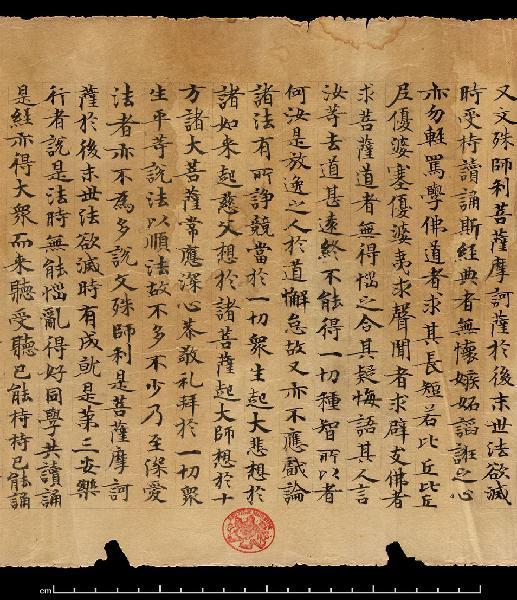 又文殊師利菩薩摩訶薩於後末世法欲滅
時受持讀誦斯經典者無懷嫉妬諂誑之心
亦勿輕罵學佛道者求其長短若比丘比丘
尼優婆塞優婆夷求聲聞者求辟支佛者
求菩薩道者無得惱之令其疑悔語其人言
汝等去道甚遠終不能得一切種智所以者
何汝是放逸之人於道懈怠故又亦不應戲論
諸法有所諍競當於一切衆生起大悲想於
諸如来起慈父想於諸菩薩起大師想於十
方諸大菩薩常應深心恭敬礼拜於一切衆
生平等說法以順法故不多不少乃至深愛
法者亦不為多說文殊師利是菩薩摩訶
薩於後末世法欲滅時有成就是第三安樂
行者說是法時無能惱亂得好同學共讀誦
是經亦得大衆而来聽受聽已能持持已能誦
cm